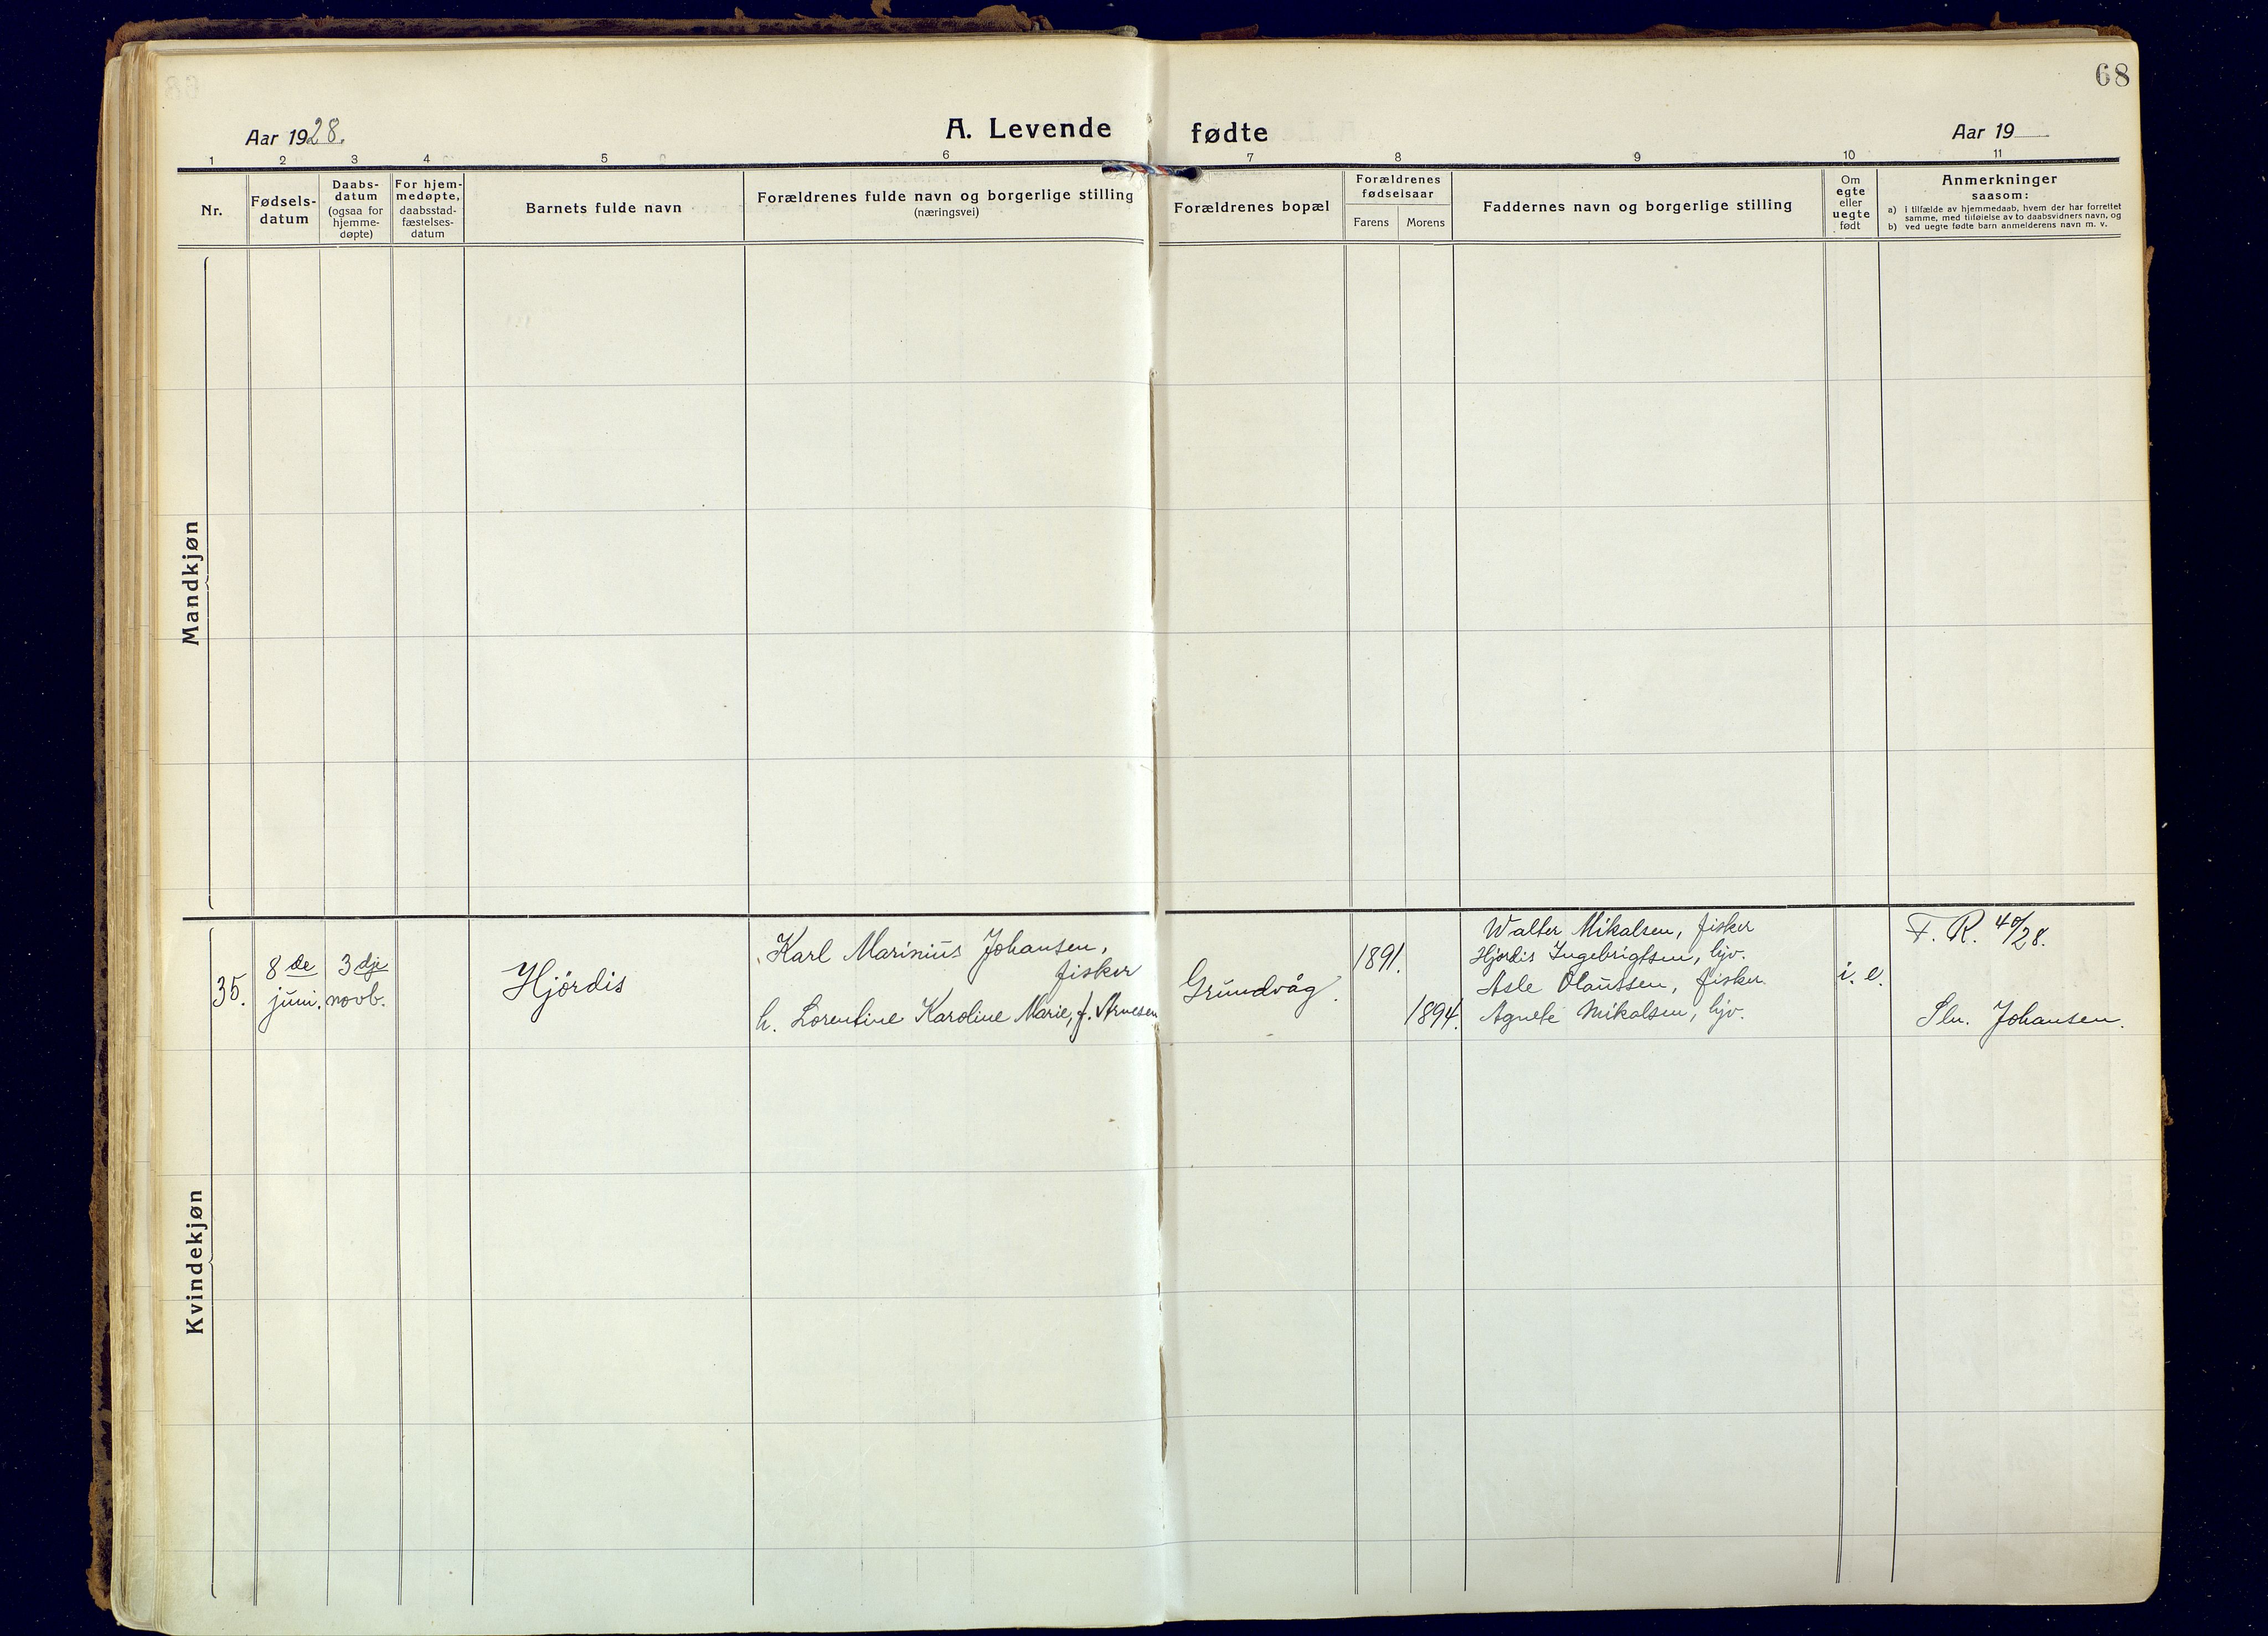 68
Aar 1928.
A. Levende fødte
Aar 19
1 2 3 4 5 6 7 8 9 10 11
Nr.
Fødsels-
datum
Daabs-
datum
(ogsaa for
hjemme-
døpte)
For hjem-
medøpte,
daabsstad-
fæstelses-
datum
Barnets fulde navn
Forældrenes fulde navn og borgerlige stilling
(næringsvei)
Forældrenes bopæl
Forældrenes
fødselsaar
Farens Morens
Faddernes navn og borgerlige stilling
Om
egte
eller
uegte
født
Anmerkninger
saasom:
a) i tilfælde av hjemmedaab, hvem der har forrettet
samme, med tilføielse av to daabsvidners navn, og
b) ved uegte fødte barn anmelderens navn m. v.
Mandkjøn
Kvindekjøn
35.
8de
juni.
3dje
novb.
Hjördis
Karl Marinius Johansen,
fisker
h. Lorentine Karoline Marie, f. Arnesen
Grundvåg.
1891.
1894.
Walter Mikalsen, fisker
Hjørdis Ingebrigtsen, hjv.
Asle Olaussen, fisker.
Agnete Mikalsen, hjv.
i. e.
F. R. 40/28.
Johansen.